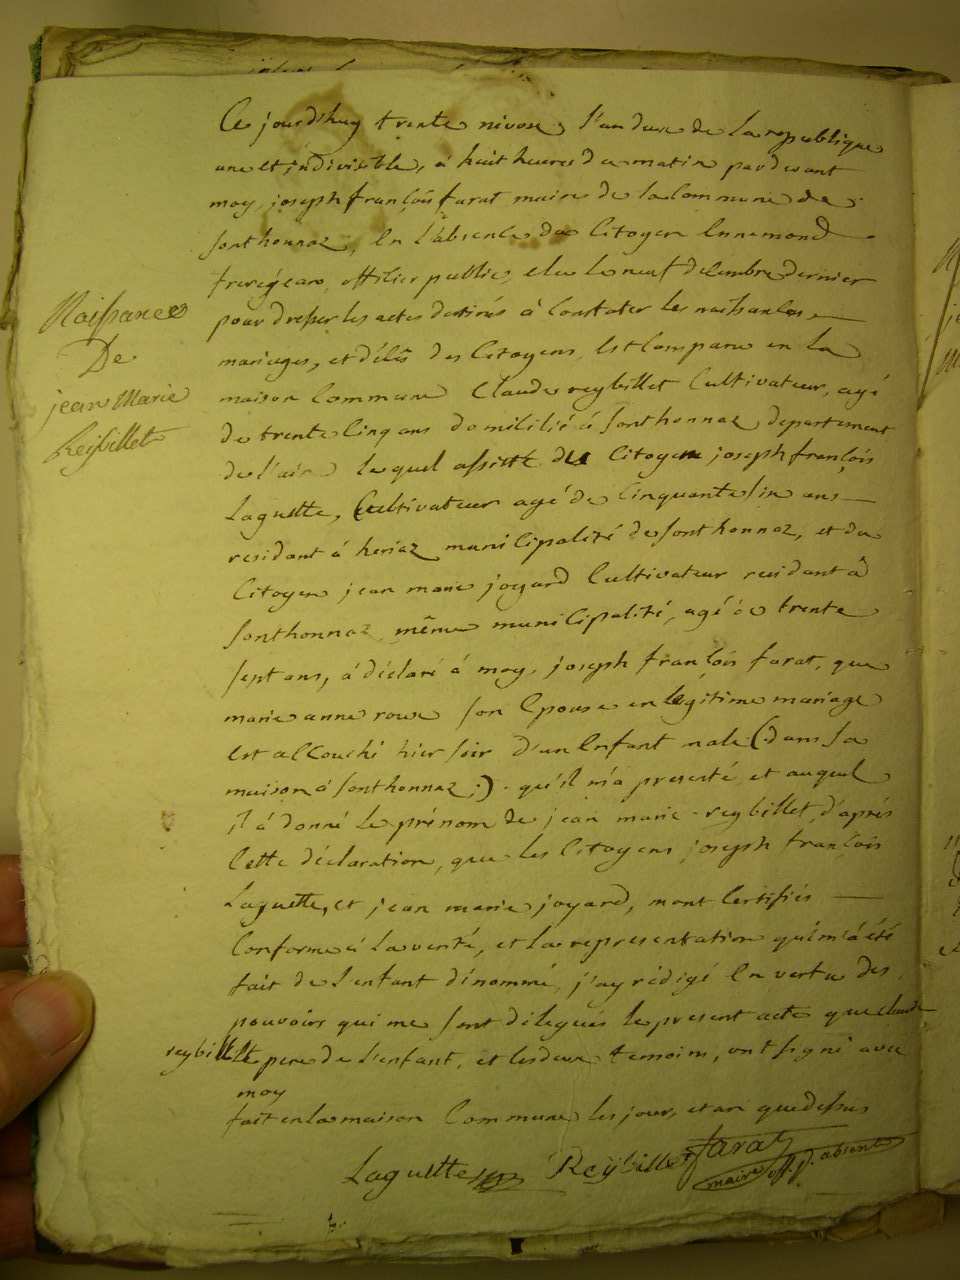 Naissance
De
jean Marie
Reybillet
Ce jourd'huy trente nivose, l'an deux de la republique
une et indivisible, à huit heures du matin par devant
moy, joseph françois farat maire de la Commune de
sonthonnaz, En l'absence du Citoyen Ennemond
officier public, elu le neuf décembre dernier
pour dresser les actes destinés à Constater les naissances,
mariages, et décès des Citoyens, Est Comparu en la
maison Commune Claude reybillet Cultivateur, agé
de trente Cinq ans domicilié à sonthonnaz departement
de l'ain lequel assisté du Citoyen joseph françois
Laguette, Cultivateur agé de Cinquante six ans
residant à heriaz municipalité de sonthonnaz, et du
Citoyen jean marie joyard Cultivateur residant à
sonthonnaz même municipalité, agé de trente
sept ans, à déclaré à moy, joseph françois farat, que
marie anne roux son Epouse en légitime mariage
Est accouché hier soir d'un Enfant male (dans sa
maison à sonthonnaz;) qu'il m'a presenté et auquel
il à donné le prénom de jean marie reybillet, d'après
Cette déclaration, que les Citoyens joseph françois
Laguette, et jean marie joyard, m'ont Certifiés
Conforme à la verité, et la representation qui m'a été
fait de l'enfant dénommé, j'ay rédigé En vertu des
pouvoirs qui me sont délégués le present acte que claude
reybillet pere de l'enfant, et les deux temoins, ont signé avec
moy
fait en la maison Commune les jour, et an que dessus
Laguette Reybillet farat
maire off. p. absent